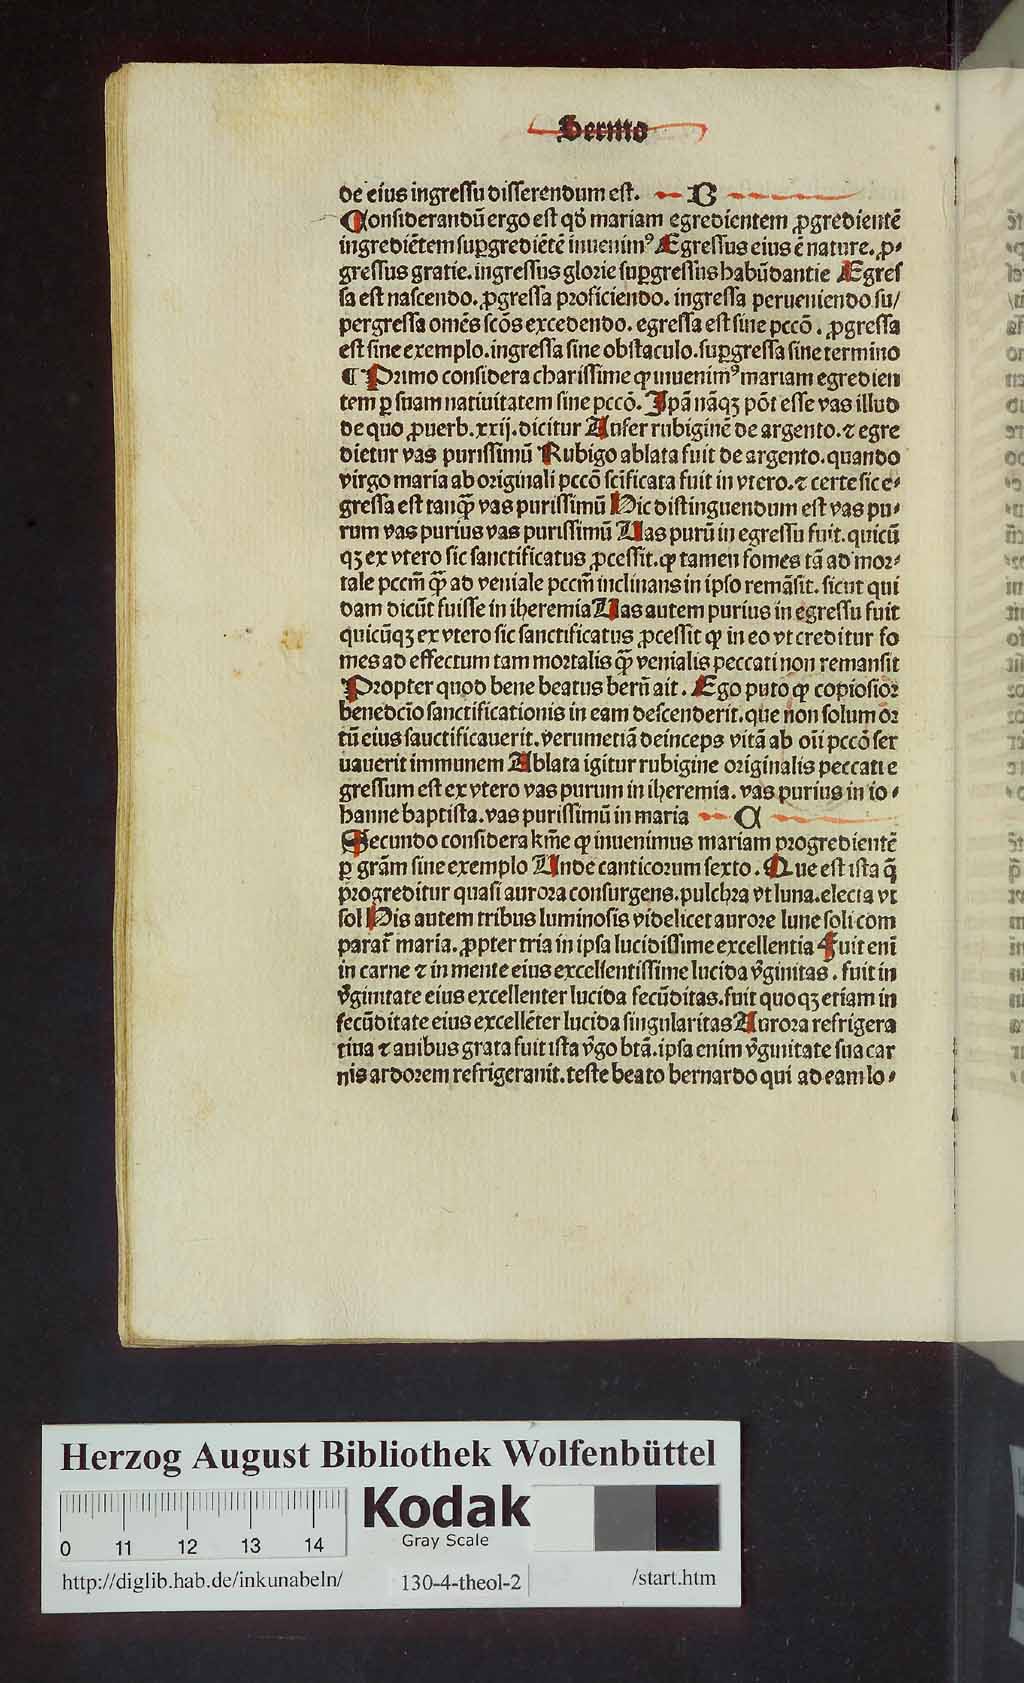 Sermo
de eius ingressu disserendum est. B
Considerandū ergo est qđ mariam egredientem ꝓgredientē
ingrediētem suꝑgrediētē inuenimꝰ Egressus eius ē nature. ꝓ-
gressus gratie. ingressus glorie suꝑgressus habūdantie Egres
sa est nascendo. ꝓgressa proficiendo. ingressa perueniendo su/
pergressa omēs scōs excedendo. egressa est sine pccō. ꝓgressa
est sine exemplo. ingressa sine obstaculo. suꝑgressa sine termino
¶ Primo considera charissime ꝙ inuenimꝰ mariam egredien
tem ꝑ suam natiuitatem sine pccō. Ipā nāqꝫ pōt esse vas illud
de quo ꝓuerb. xxij. dicitur Aufer rubiginē de argento. ⁊ egre
dietur vas purissimū Rubigo ablata fuit de argento. quando
virgo maria ab originali pccō scīficata fuit in vtero. ⁊ certe sic e-
gressa est tanꝙ̄ vas purissimū Hic distinguendum est vas pu-
rum vas purius vas purissimū Uas purū in egressu fuit. quicū
qꝫ ex vtero sic sanctificatus ꝓcessit. ꝙ tamen fomes tā ad mor-
tale pccm̄ ꝙ̄ ad veniale pccm̄ inclinans in ipso remāsit. sicut qui
dam dicūt fuisse in iheremia Uas autem purius in egressu fuit
quicūqꝫ ex vtero sic sanctificatus ꝓcessit ꝙ in eo vt creditur fo
mes ad effectum tam mortalis ꝙ̄ venialis peccati non remansit
Propter quod bene beatus berñ ait. Ego puto ꝙ copiosior
benedcīo sanctificationis in eam descenderit. que non solum or
tū eius sauctificauerit. verumetiā deinceps vitā ab oīi pccō ser
uauerit immunem Ablata igitur rubigine originalis peccati e
gressum est ex vtero vas purum in iheremia. vas purius in io-
hanne baptista. vas purissimū in maria C
Secundo considera km̄e ꝙ inuenimus mariam progredientē
ꝑ grām sine exemplo Unde canticorum sexto. Que est ista q̄
progreditur quasi aurora consurgens. pulchra vt luna. electa vt
sol His autem tribus luminosis videlicet aurore lune soli com
parat̄ maria. ꝓpter tria in ipsa lucidissime excellentia Fuit enī
in carne ⁊ in mente eius excellentissime lucida v̄ginitas. fuit in
v̄ginitate eius excellenter lucida fecūditas. fuit quoqꝫ etiam in
fecūditate eius excellēter lucida singularitas Aurora refrigera
tiua ⁊ auibus grata fuit ista v̄go btā. ipsa enim v̄ginitate sua car
nis ardorem refrigerauit. teste beato bernardo qui ad eam lo-
Herzog August Bibliothek Wolfenbüttel
Kodak
Gray Scale
0 11 12 13 14
http://diglib.hab.de/inkunabeln/ 130-4-theol-2 /start.htm